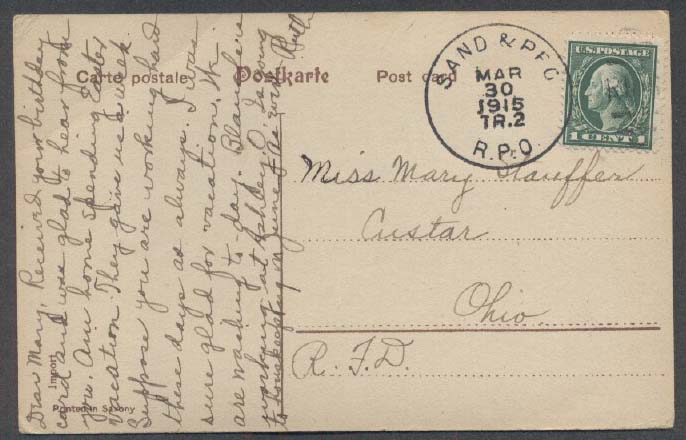 Carte postale Postkarte Post card
SAND & PFC
MAR
30
1915
TR.2
R.P.O.
U.S. POSTAGE
1 CENT 1
Miss Mary Stauffer
Custar
Ohio.
R.F.D.
Dear Mary, Received your birthday
card and was glad to hear from
you. Am home spending Easter
vacation. They gave us a week
Suppose you are working hard
these days as always. I was
sure glad for vacation. We
are washing to-day. Blanche is
working at Ashley O. Is going
to housekeeping in June. As ever Ruth
Import
Printed in Saxony